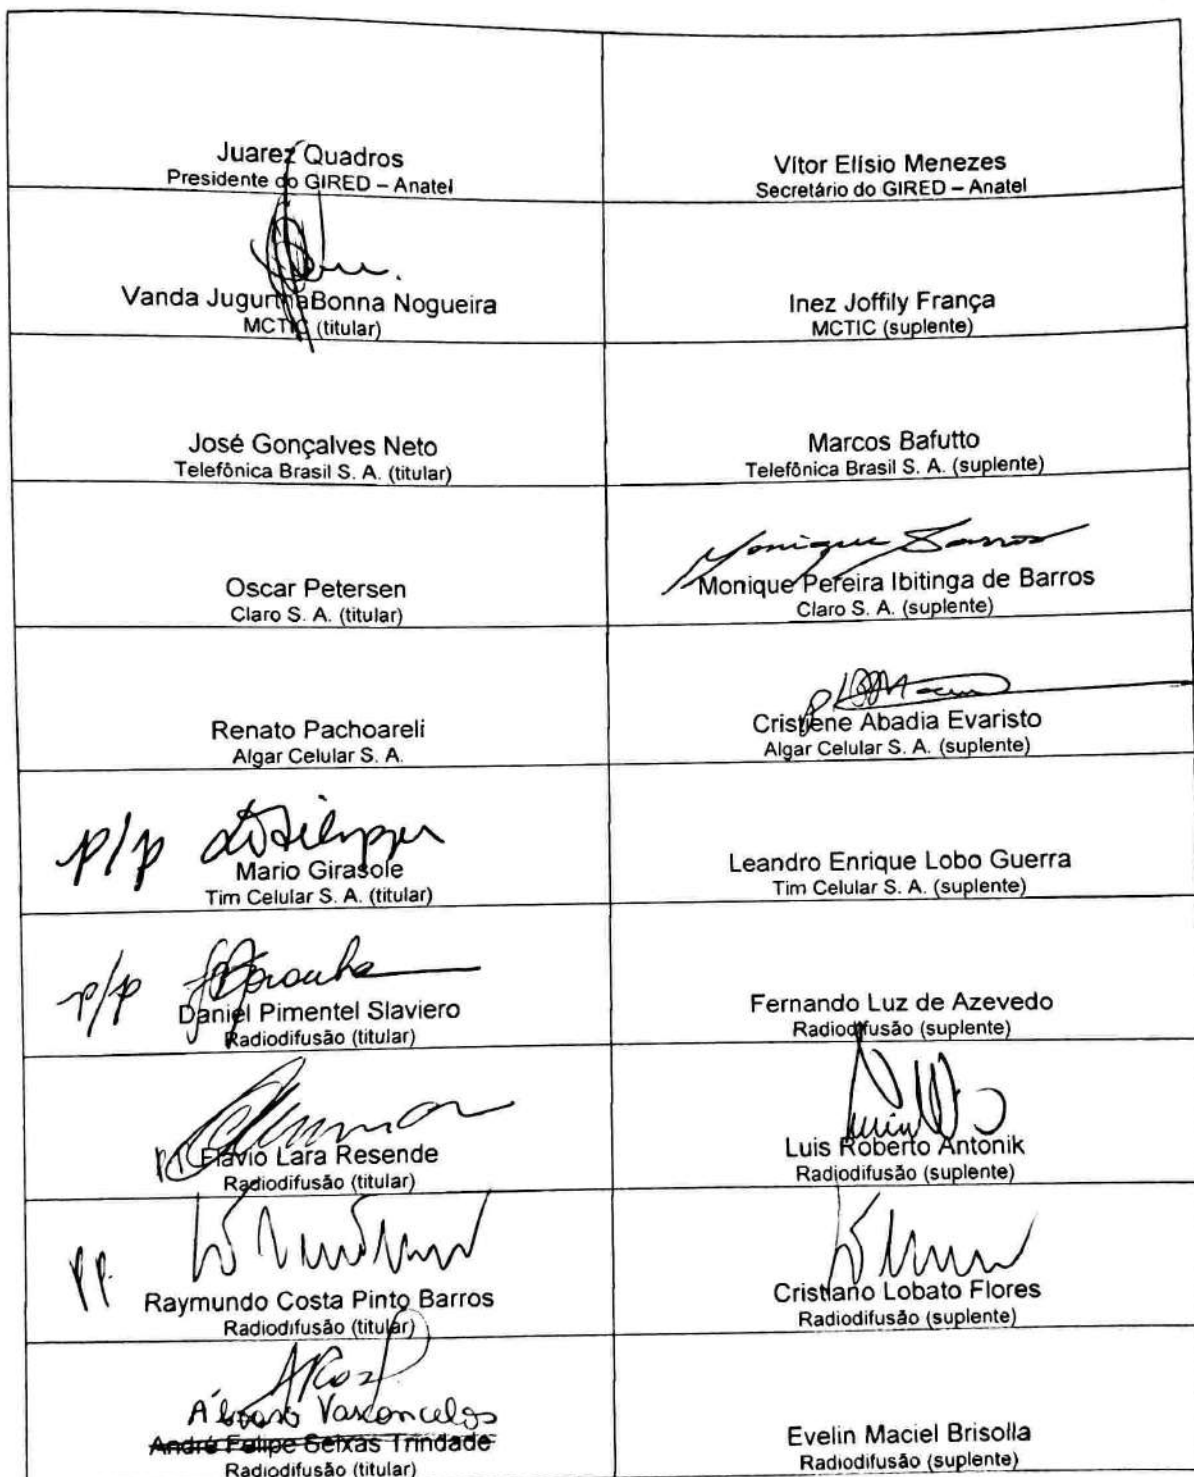 Juarez Quadros
Presidente do GIRED – Anatel
Vitor Elísio Menezes
Secretário do GIRED – Anatel
Vanda JugurthaBonna Nogueira
MCTIC (titular)
Inez Joffily França
MCTIC (suplente)
José Gonçalves Neto
Telefônica Brasil S. A. (titular)
Marcos Bafutto
Telefônica Brasil S. A. (suplente)
Oscar Petersen
Claro S. A. (titular)
Monique Barros
Monique Pereira Ibitinga de Barros
Claro S. A. (suplente)
Renato Pachoareli
Algar Celular S. A.
Cristiene Abadia Evaristo
Algar Celular S. A. (suplente)
p/p
Mario Girasole
Tim Celular S. A. (titular)
Leandro Enrique Lobo Guerra
Tim Celular S. A. (suplente)
p/p
Daniel Pimentel Slaviero
Radiodifusão (titular)
Fernando Luz de Azevedo
Radiodifusão (suplente)
Flavio Lara Resende
Radiodifusão (titular)
Luis Roberto Antonik
Radiodifusão (suplente)
pp.
Raymundo Costa Pinto Barros
Radiodifusão (titular)
Cristiano Lobato Flores
Radiodifusão (suplente)
Álvaro Vasconcelos
André Felipe Seixas Trindade
Radiodifusão (titular)
Evelin Maciel Brisolla
Radiodifusão (suplente)